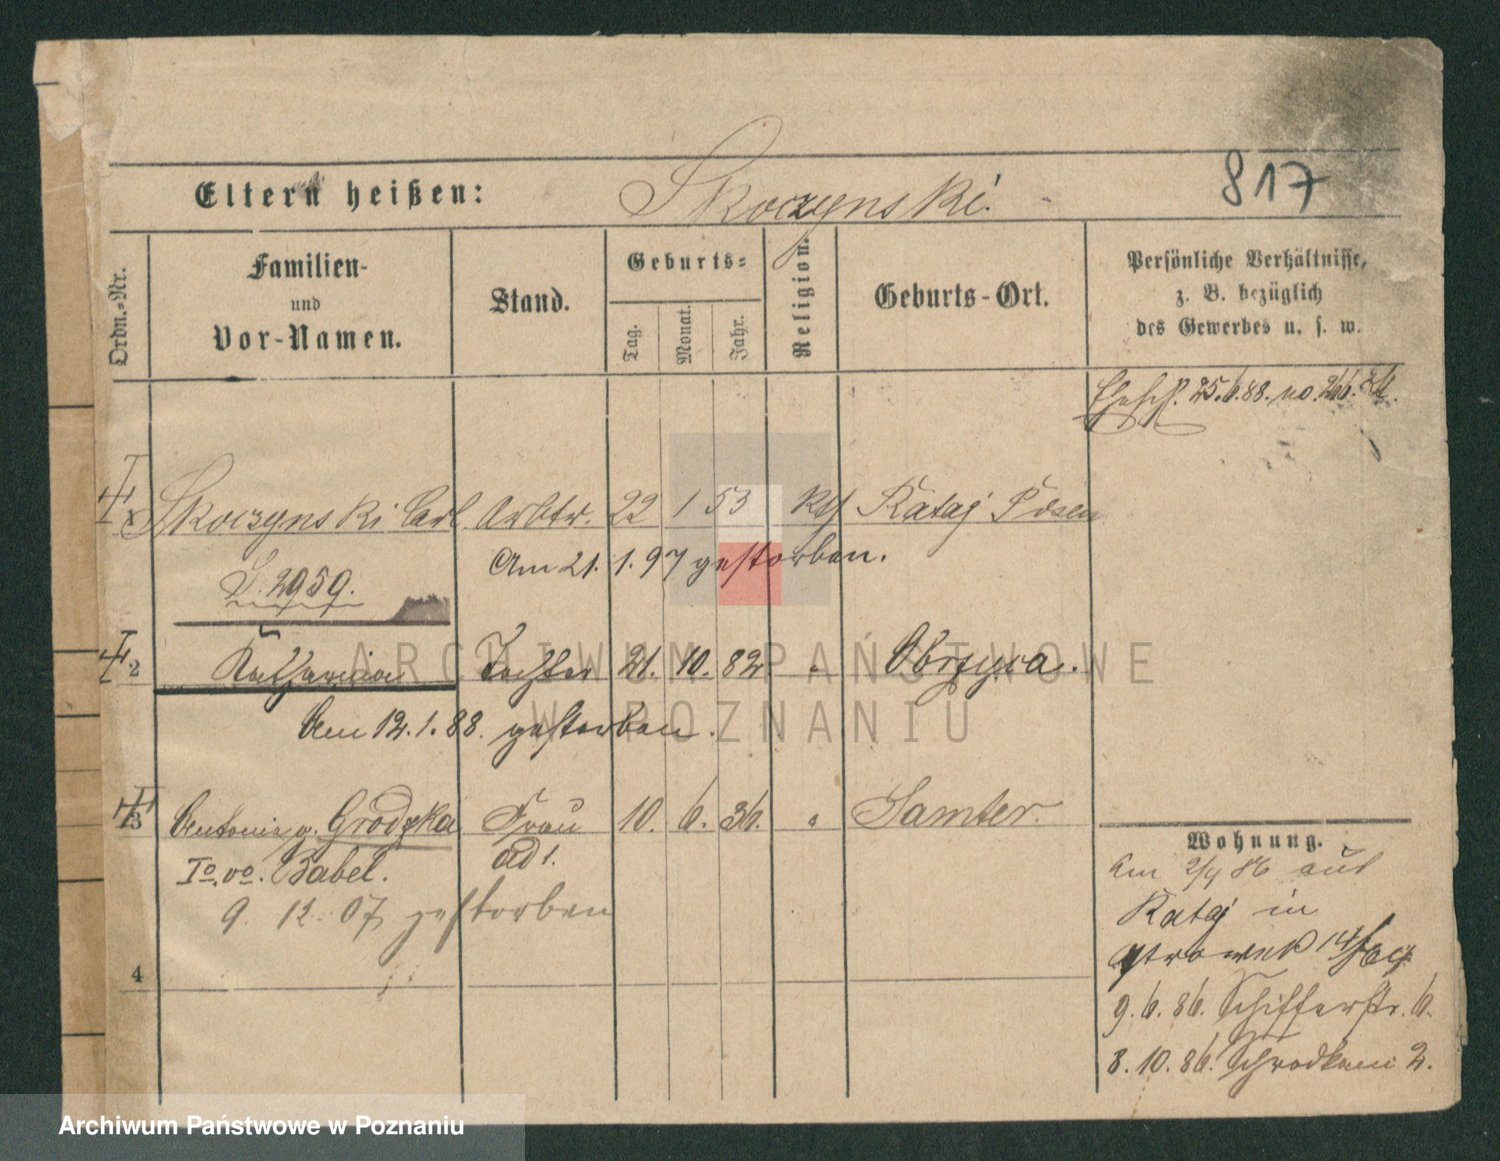 817
Eltern heißen: Skoczynski.
Ordn.-Nr.
Familien-
und
Vor-Namen.
Stand.
Geburts-
Tag.
Monat.
Jahr.
Religion.
Geburts-Ort.
Persönliche Verhältnisse,
z. B. bezüglich
des Gewerbes u. s. w.
25.6.88. no. 266.
1 Skoczynski Carl Arbtr. 22 1 53 kth Rataj Posen
Am 21. 1. 97 gestorben.
2959.
2 Katharina Tochter 21. 10. 82 Obrzyca.
Am 12. 1. 88. gestorben.
3 Antonie g. Grodzka Frau 10. 6. 36. Samter.
Io. vo. Babel. ad 1.
9. 12. 07 gestorben
4
Wohnung.
Am 2/4 86 aus
Rataj in
Ostrowek 14
9. 6. 86. Schifferstr. 6.
8. 10. 86. Schrodkam. 2.
ARCHIWUM PAŃSTWOWE
W POZNANIU
Archiwum Państwowe w Poznaniu